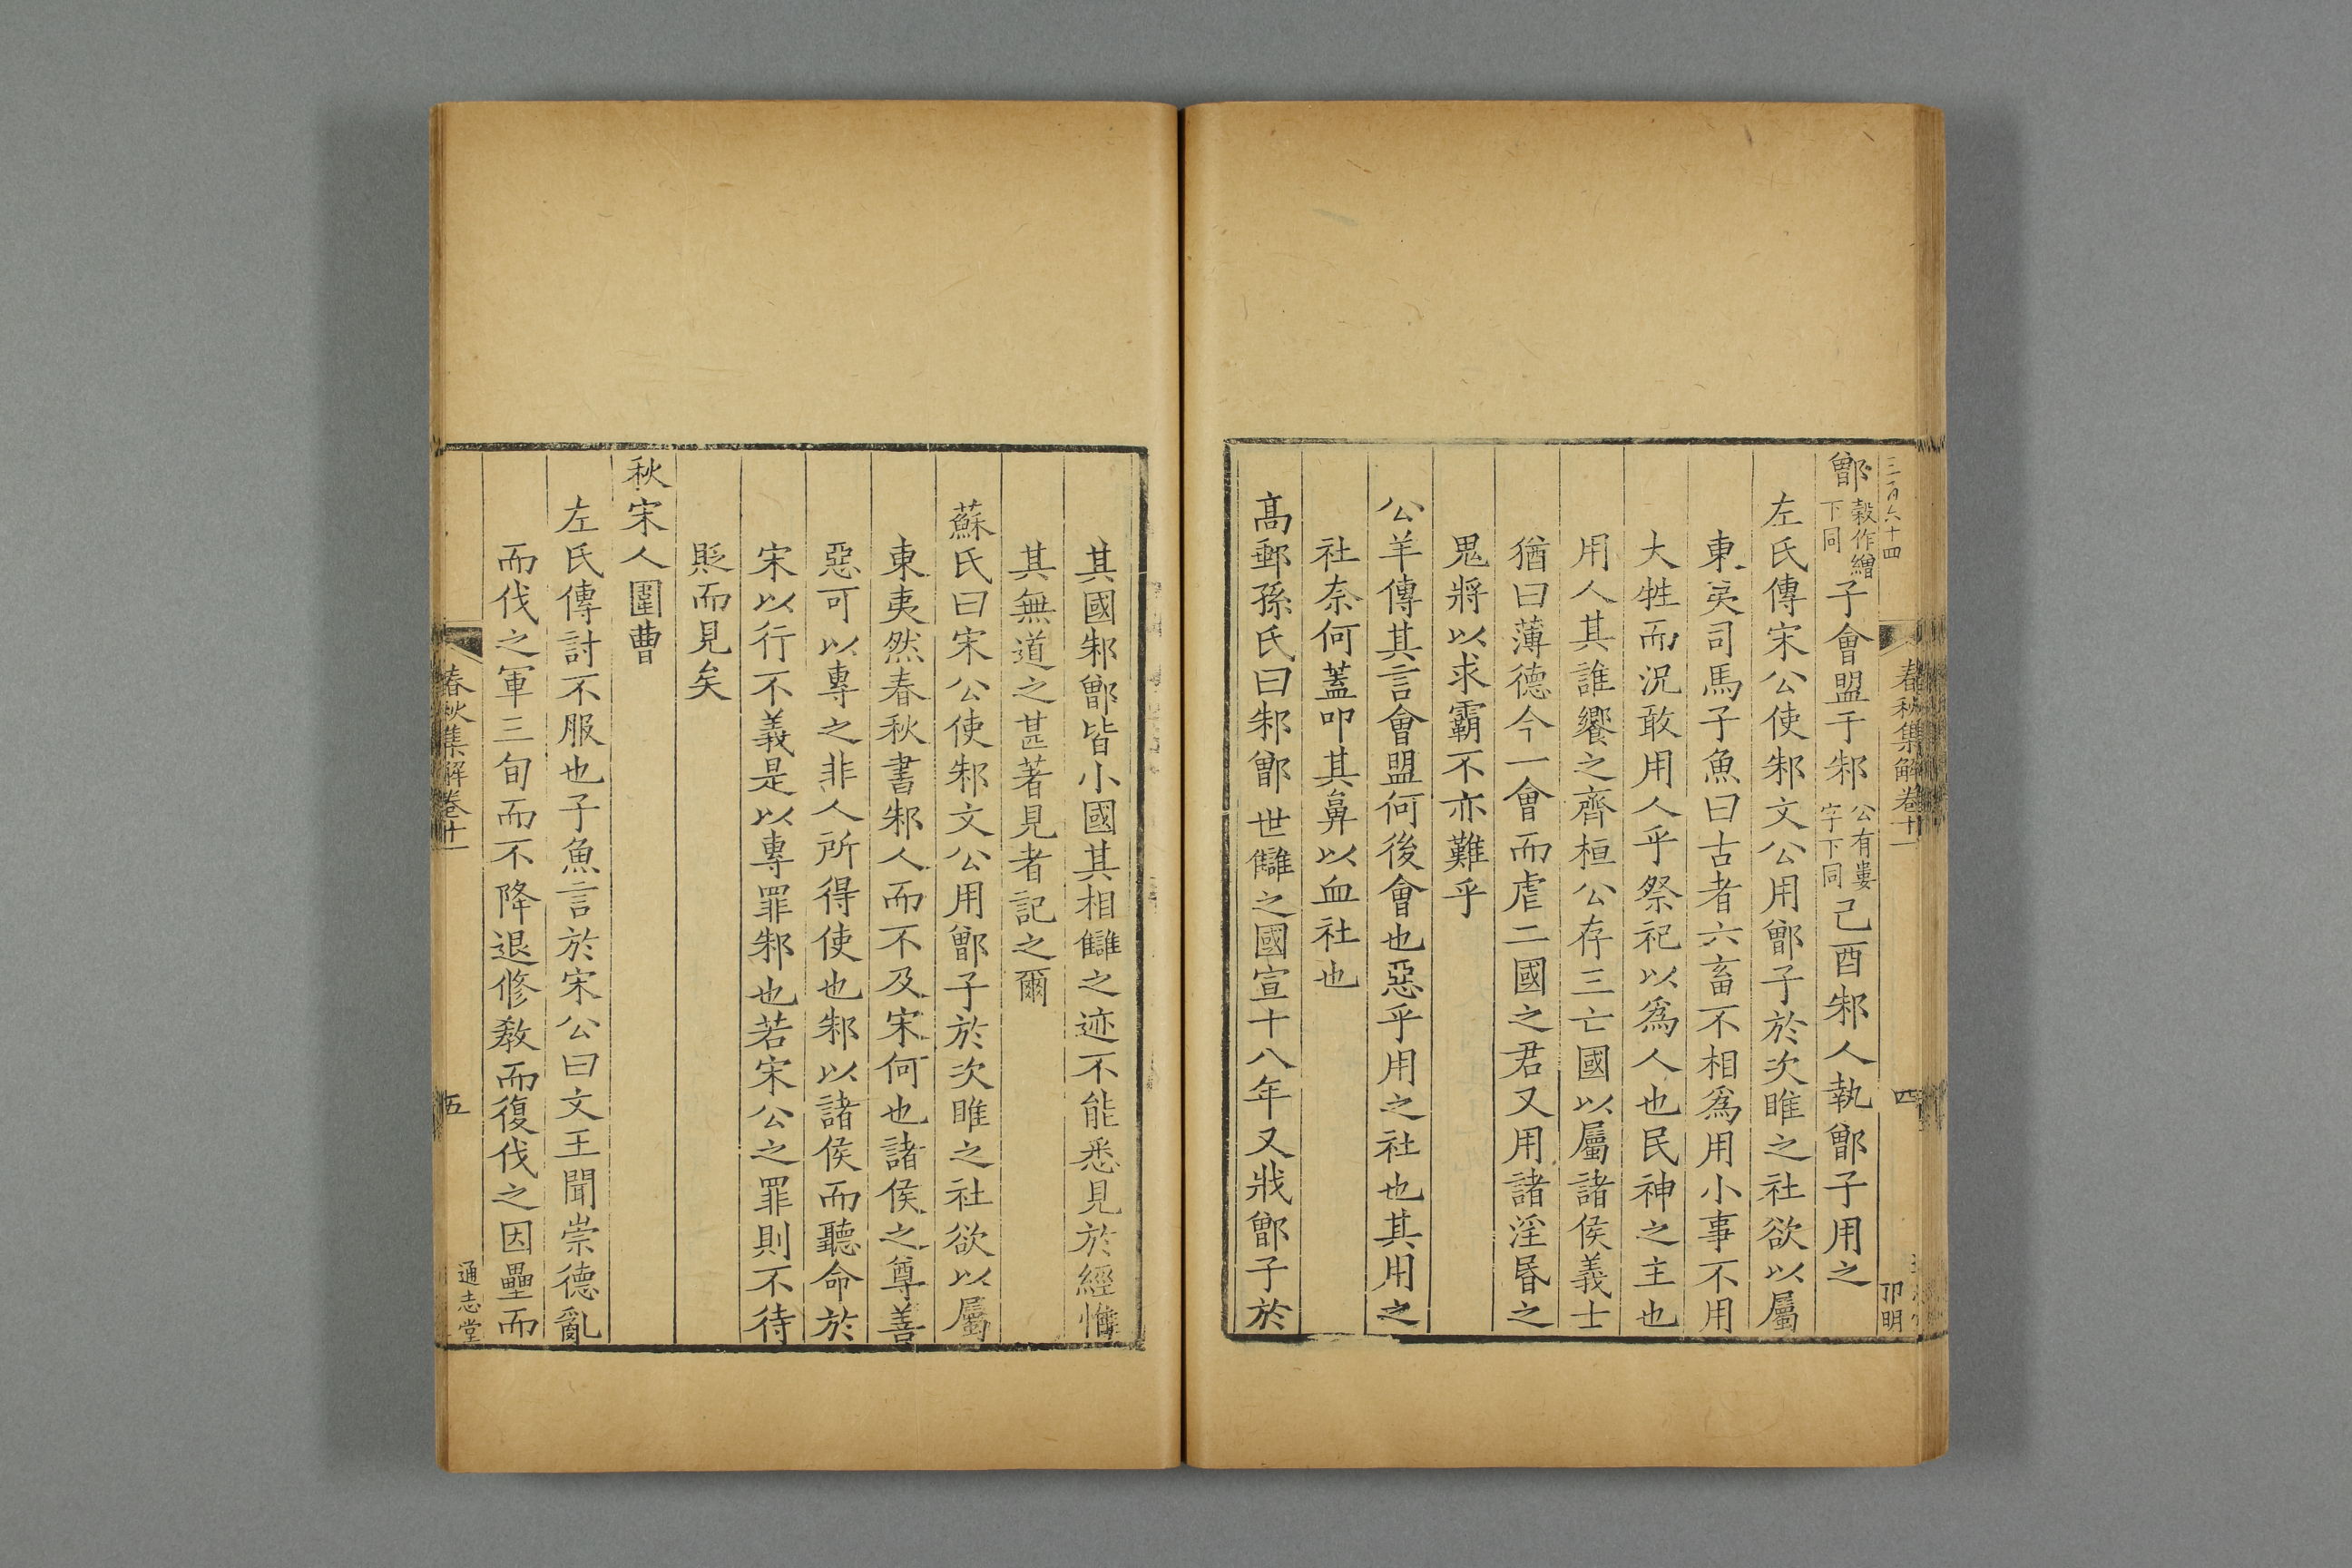 三百六十四
春秋集解卷十一
四
卭明
鄫穀作繒下同子會盟于邾公有婁字下同己酉邾人執鄫子用之
左氏傳宋公使邾文公用鄫子於次睢之社欲以屬
東夷司馬子魚曰古者六畜不相爲用小事不用
大牲而況敢用人乎祭祀以爲人也民神之主也
用人其誰饗之齊桓公存三亡國以屬諸侯義士
猶曰薄德今一會而虐二國之君又用諸淫昬之
鬼將以求霸不亦難乎
公羊傳其言會盟何後會也惡乎用之社也其用之
社奈何蓋叩其鼻以血社也
高郵孫氏曰邾鄫世讎之國宣十八年又戕鄫子於
其國邾鄫皆小國其相讎之迹不能悉見於經惟
其無道之甚著見者記之爾
蘇氏曰宋公使邾文公用鄫子於次睢之社欲以屬
東夷然春秋書邾人而不及宋何也諸侯之尊善
惡可以專之非人所得使也邾以諸侯而聽命於
宋以行不義是以專罪邾也若宋公之罪則不待
貶而見矣
秋宋人圍曹
左氏傳討不服也子魚言於宋公曰文王聞崇德亂
而伐之軍三旬而不降退修教而復伐之因壘而
春秋集解卷十一
五
通志堂